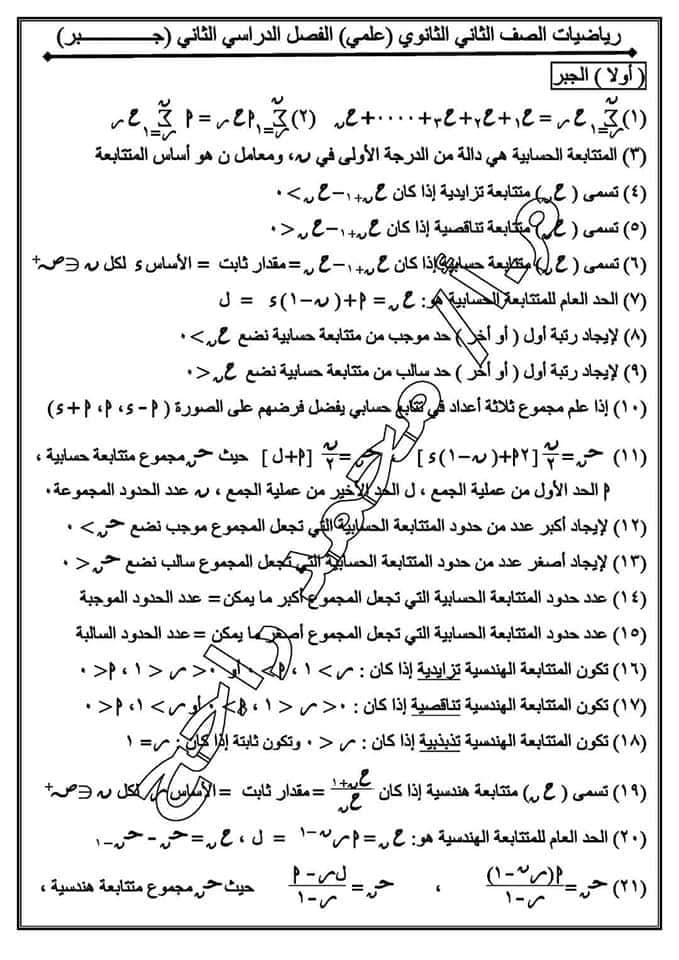 رياضيات الصف الثاني الثانوي (علمي) الفصل الدراسي الثاني (جــــبر)
( أولا ) الجبر
(١) ∑ن ر=١ ح ر = ح١ + ح٢ + ح٣ + ٠٠٠٠ + حن (٢) ∑ن ر=١ أ ح ر = أ ∑ن ر=١ ح ر
(٣) المتتابعة الحسابية هي دالة من الدرجة الأولى في ن، ومعامل ن هو أساس المتتابعة
(٤) تسمى ( حن) متتابعة تزايدية إذا كان حن+١ − حن > ٠
(٥) تسمى ( حن) متتابعة تناقصية إذا كان حن+١ − حن < ٠
(٦) تسمى ( حن) متتابعة حسابية إذا كان حن+١ − حن = مقدار ثابت = الأساس ء لكل ن ∈ ص+
(٧) الحد العام للمتتابعة الحسابية هو: حن = أ + ( ن − ١) ء = ل
(٨) لإيجاد رتبة أول ( أو أخر ) حد موجب من متتابعة حسابية نضع حن > ٠
(٩) لإيجاد رتبة أول ( أو أخر ) حد سالب من متتابعة حسابية نضع حن < ٠
(١٠) إذا علم مجموع ثلاثة أعداد في تتابع حسابي يفضل فرضهم على الصورة ( أ − ء ، أ ، أ + ء )
(١١) حـن = ن/٢ [ ٢أ + ( ن − ١) ء ] حـن = ن/٢ [ أ + ل ] حيث حـن مجموع متتابعة حسابية ،
أ الحد الأول من عملية الجمع ، ل الحد الأخير من عملية الجمع ، ن عدد الحدود المجموعة٠
(١٢) لإيجاد أكبر عدد من حدود المتتابعة الحسابية التي تجعل المجموع موجب نضع حـن > ٠
(١٣) لإيجاد أصغر عدد من حدود المتتابعة الحسابية التي تجعل المجموع سالب نضع حـن < ٠
(١٤) عدد حدود المتتابعة الحسابية التي تجعل المجموع أكبر ما يمكن = عدد الحدود الموجبة
(١٥) عدد حدود المتتابعة الحسابية التي تجعل المجموع أصغر ما يمكن = عدد الحدود السالبة
(١٦) تكون المتتابعة الهندسية تزايدية إذا كان : ر > ١ ، أ > ٠ أو ٠ < ر < ١ ، أ < ٠
(١٧) تكون المتتابعة الهندسية تناقصية إذا كان : ٠ < ر < ١ ، أ > ٠ أو ر > ١ ، أ < ٠
(١٨) تكون المتتابعة الهندسية تذبذبية إذا كان : ر < ٠ وتكون ثابتة إذا كان : ر = ١
(١٩) تسمى ( حن) متتابعة هندسية إذا كان حن+١/حن = مقدار ثابت = الأساس ر لكل ن ∈ ص+
(٢٠) الحد العام للمتتابعة الهندسية هو: حن = أ ر^ن−١ = ل ، حن = حـن − حـن−١
(٢١) حـن = أ(ر^ن − ١)/(ر − ١) ، حـن = (ل ر − أ)/(ر − ١) حيث حـن مجموع متتابعة هندسية ،